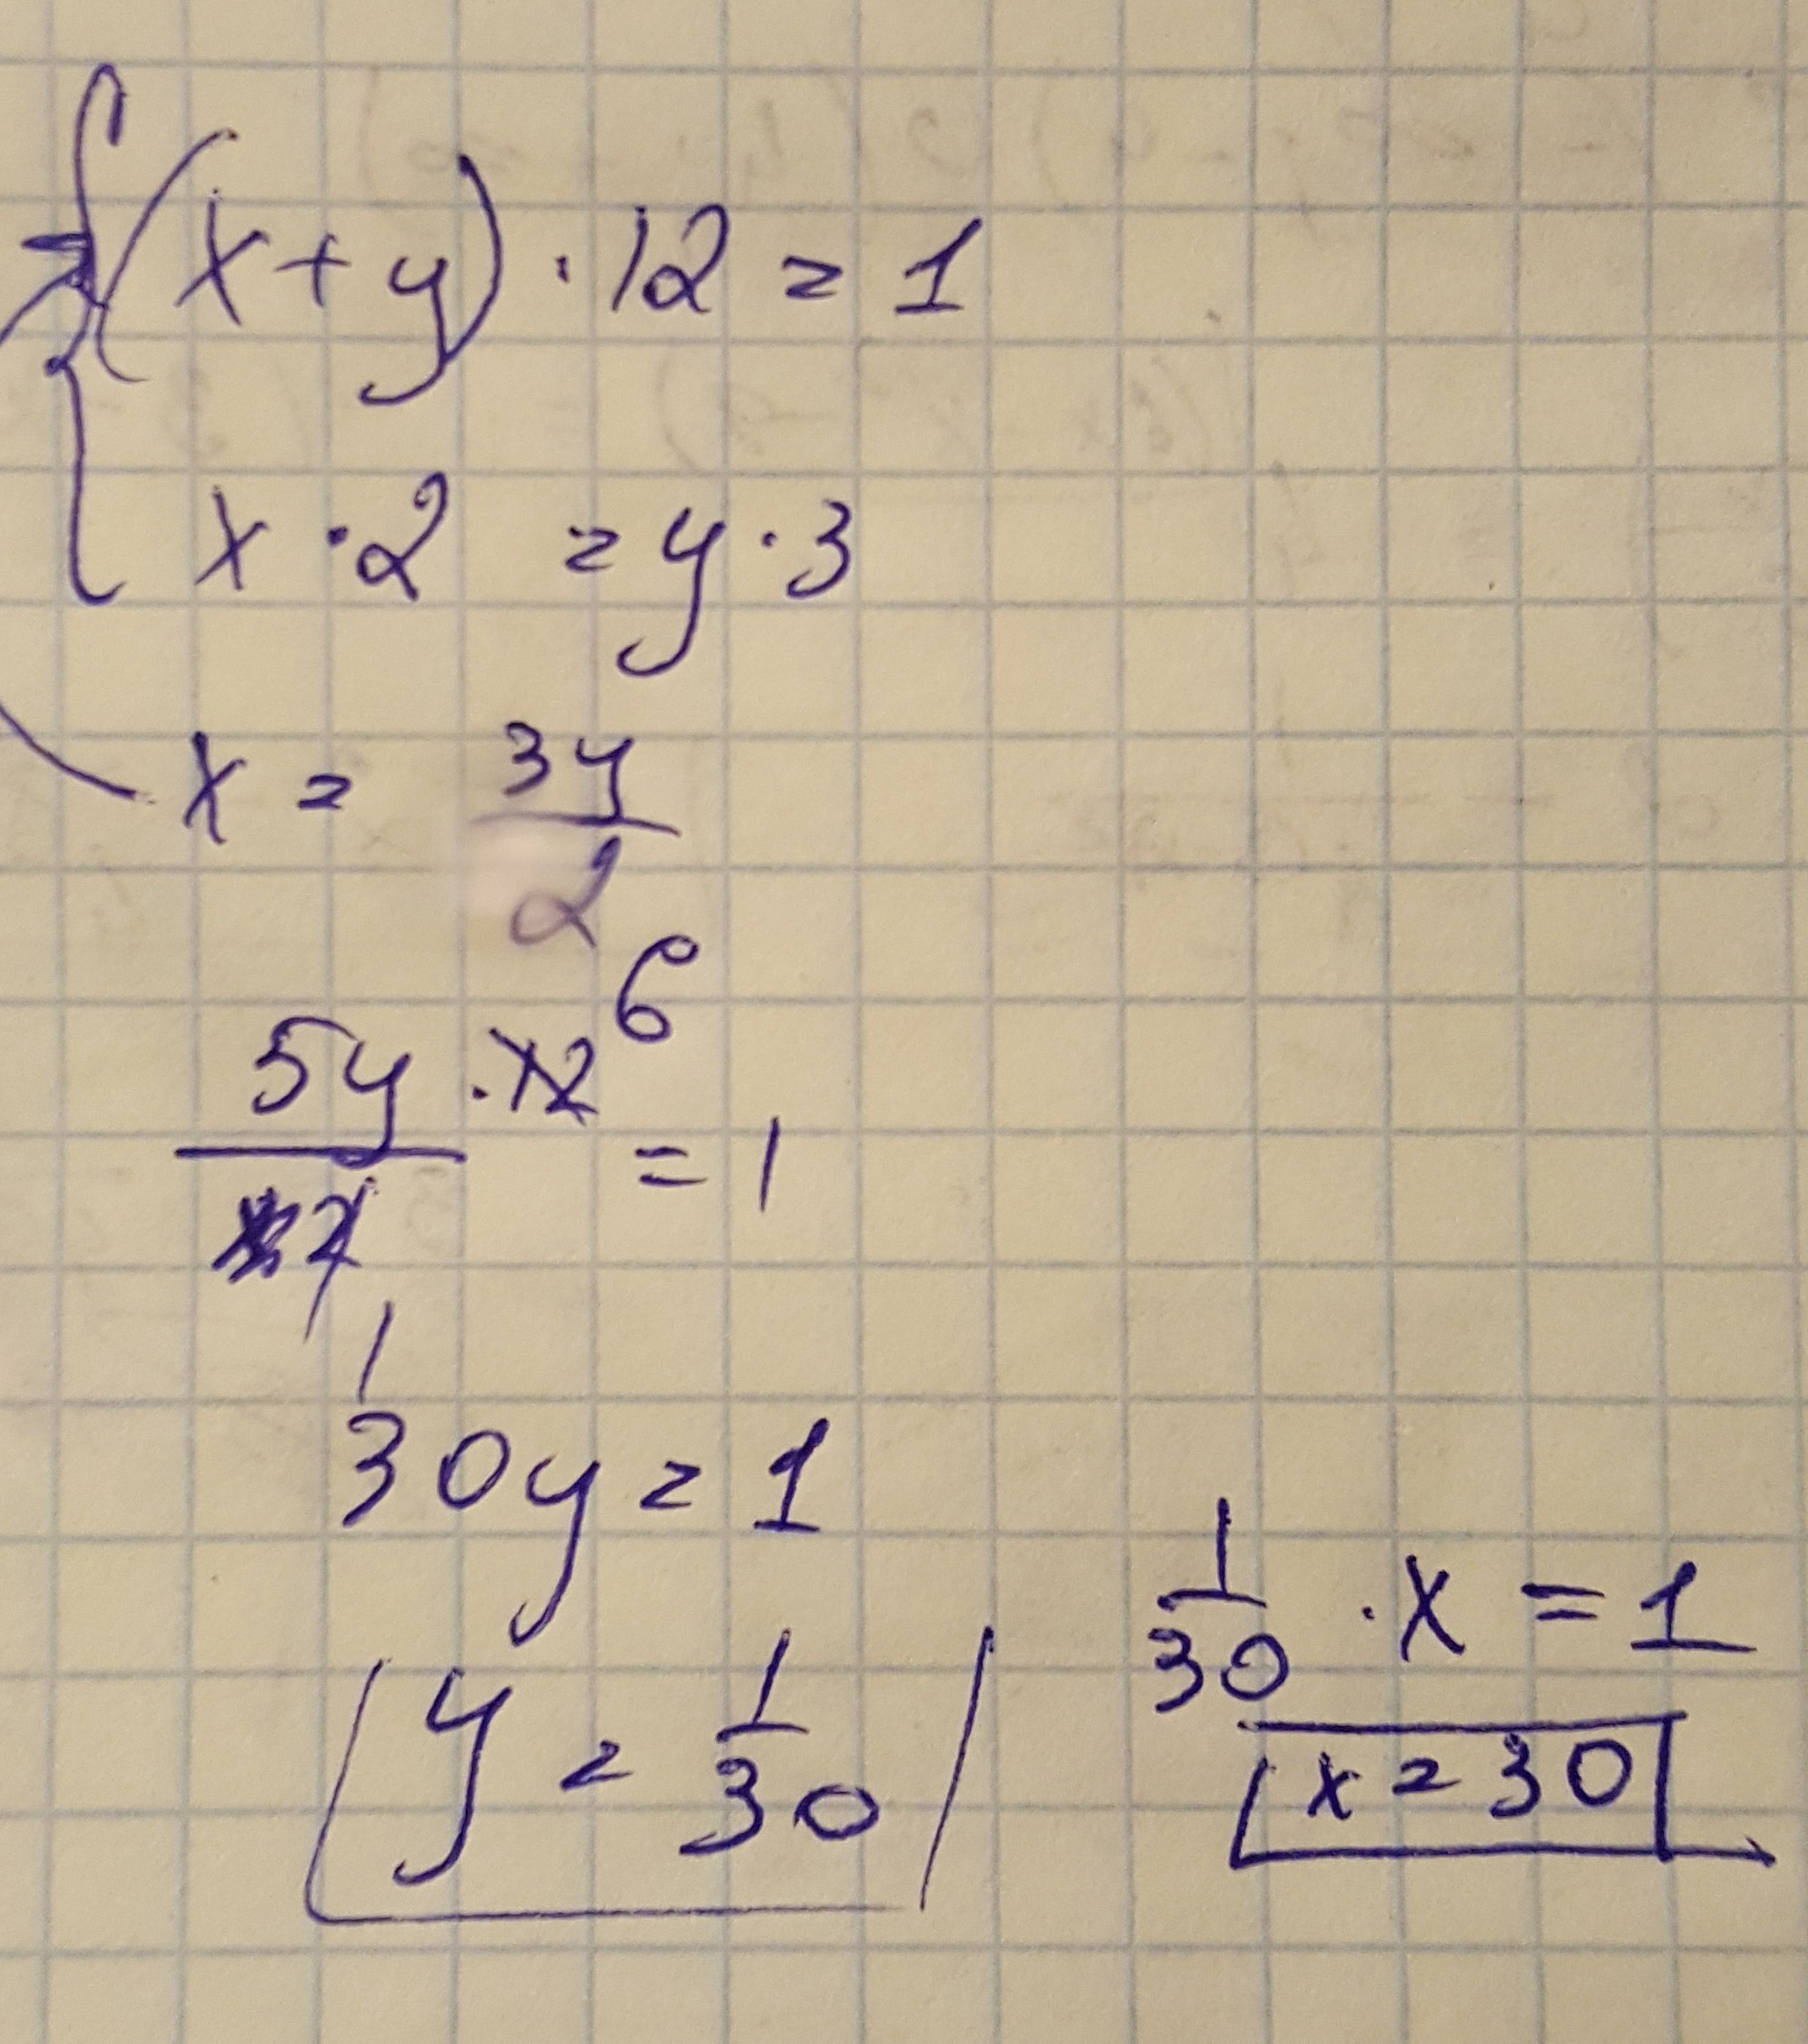 (x + y) · 12 = 1
x · 2 = y · 3
x = 3y / 2
5y · 12 / 2 = 1
6
1
30y = 1
y = 1/30
1/30 · x = 1
x = 30